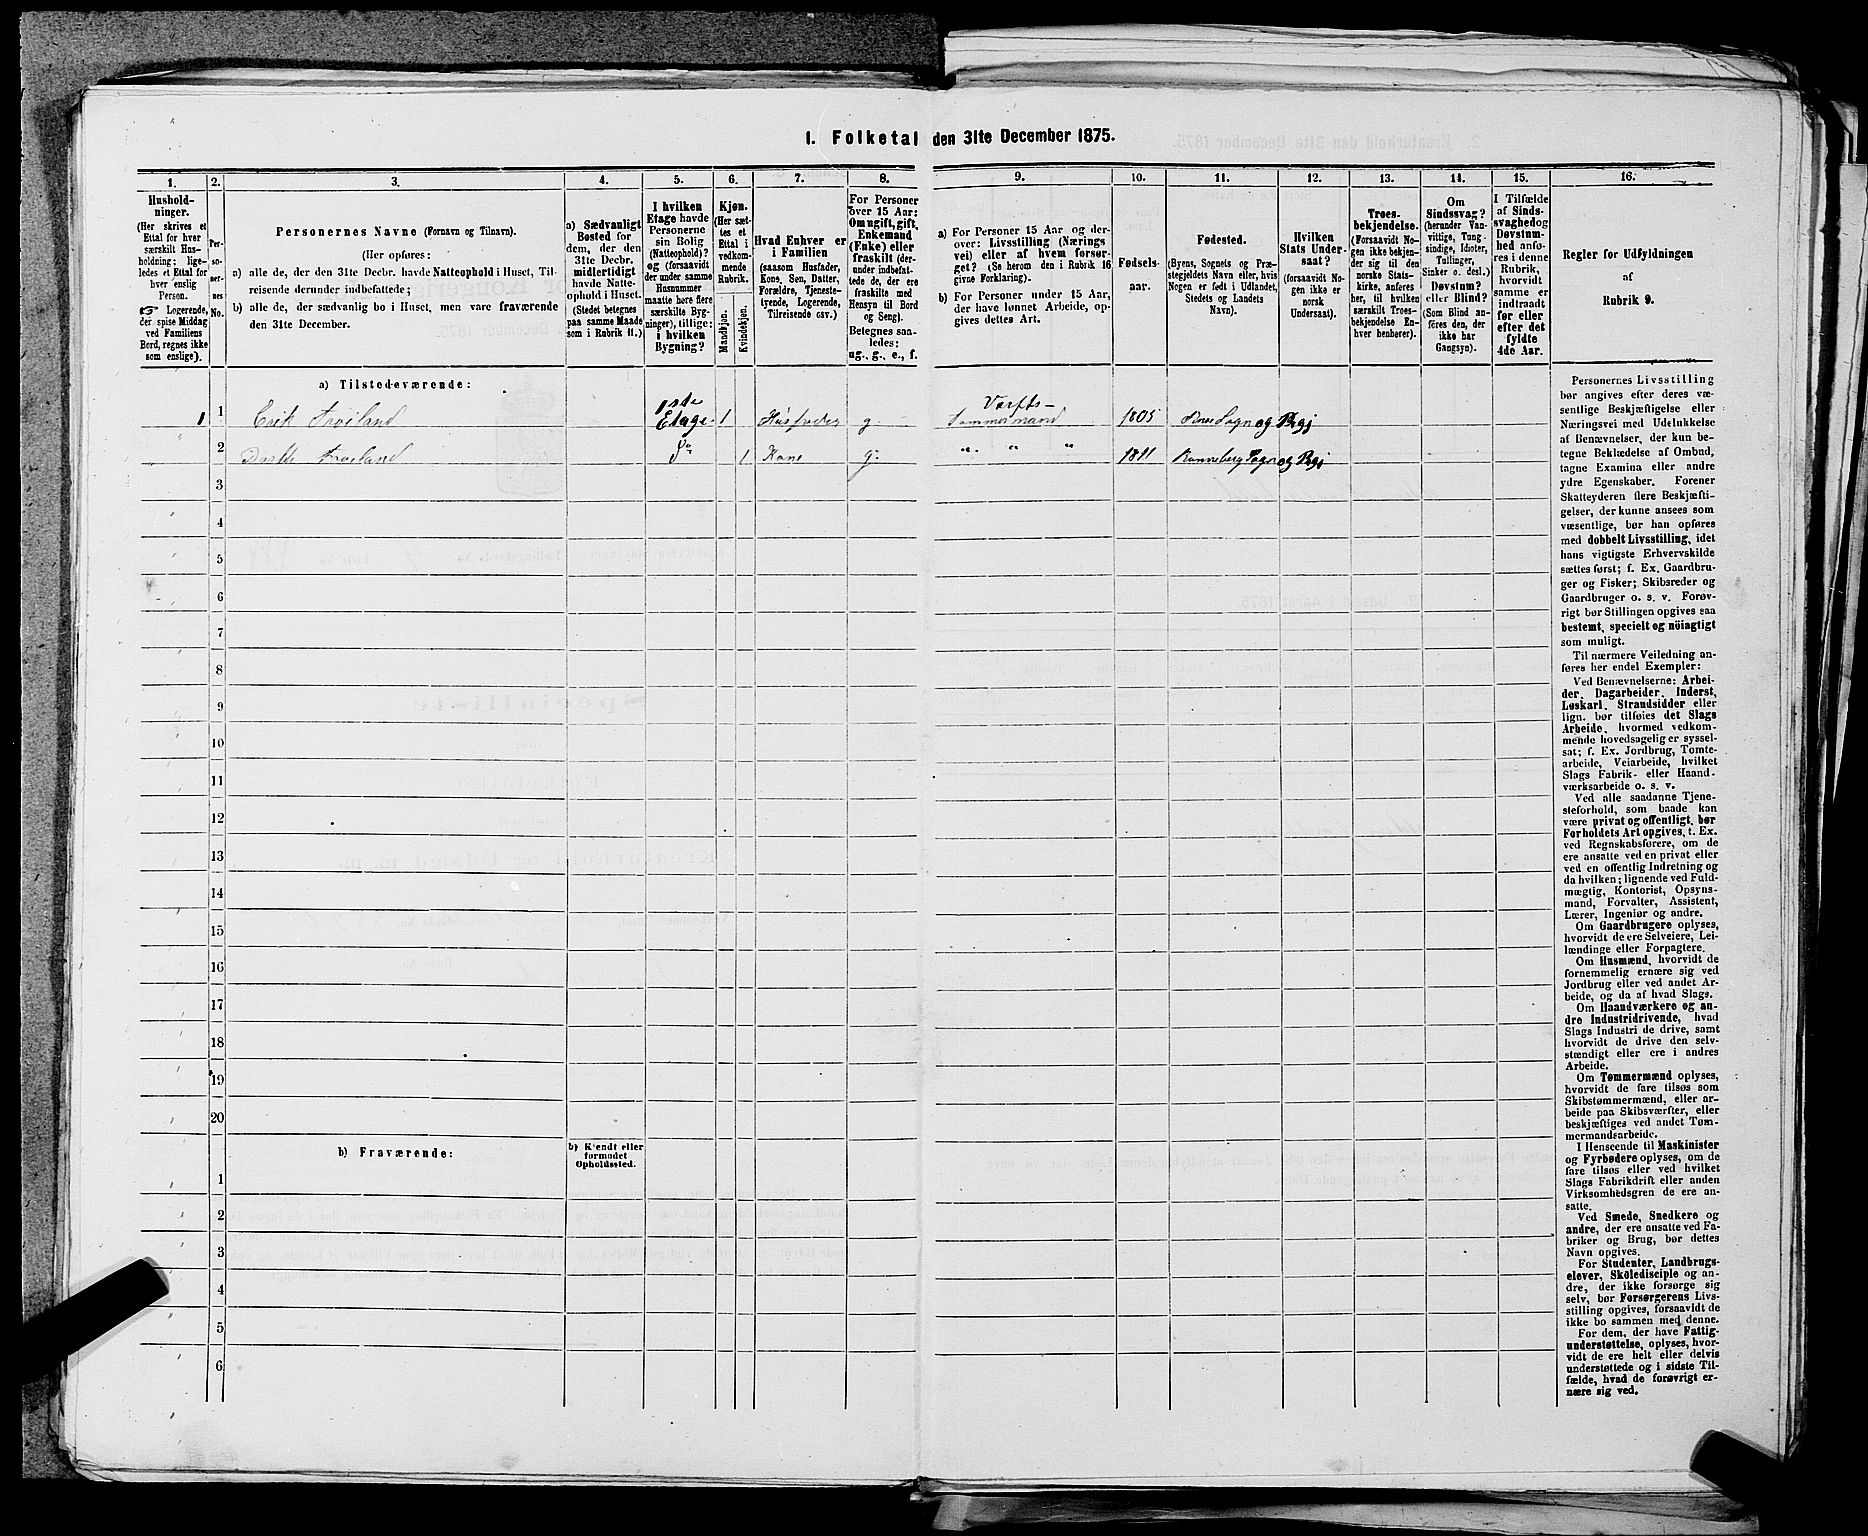 1. Folketal den 31te December 1875.
1. 2. 3. 4. 5. 6. 7. 8. 9. 10. 11. 12. 13. 14. 15. 16.
Hushold-
ninger.
(Her skrives et
Ettal for hver
særskilt Hus-
holdning; lige-
ledes et Ettal for
hver enslig
Person.
☞ Logerende,
der spise Middag
ved Familiens
Bord, regnes ikke
som enslige).
Per-
so-
ner-
nes
No.
Personernes Navne (Fornavn og Tilnavn).
(Her opføres:
a) alle de, der den 31te Decbr. havde Natteophold i Huset, Til-
reisende derunder indbefattede;
b) alle de, der sædvanlig bo i Huset, men vare fraværende
den 31te December.
a) Sædvanligt
Bosted for
dem, der den
31te Decbr.
midlertidigt
havde Natte-
ophold i Huset.
(Stedet betegnes
paa samme Maade
som i Rubrik 11.)
I hvilken
Etage havde
Personerne
sin Bolig
(Natteophold)?
og (forsaavidt
der under samme
Husnummer
maatte høre flere
særskilte Byg-
ninger), tillige:
i hvilken
Bygning?
Kjøn.
(Her sæt-
tes et
Ettal i
vedkom-
mende
Rubrik.
Mandkjøn.
Kvindekjøn.
Hvad Enhver er
i Familien
(saasom Husfader,
Kone, Søn, Datter,
Forældre, Tjeneste-
tyende, Logerende,
Tilreisende osv.)
For Personer
over 15 Aar:
Om ugift, gift,
Enkemand
(Enke) eller
fraskilt (der-
under indbefat-
tede de, der ere
fraskilte med
Hensyn til Bord
og Seng).
Betegnes saa-
ledes:
ug., g., e., f.
a) For Personer 15 Aar og der-
over: Livsstilling (Nærings
vei) eller af hvem forsør-
get? (Se herom den i Rubrik 16
givne Forklaring).
b) For Personer under 15 Aar,
der have lønnet Arbeide, op-
gives dettes Art.
Fødsels-
aar.
Fødested.
(Byens, Sognets og Præ-
stegjeldets Navn eller, hvis
Nogen er født i Udlandet,
Stedets og Landets
Navn).
Hvilken
Stats Under-
saat?
(forsaavidt No-
gen ikke er
norsk
Undersaat).
Troes-
bekjendelse.
(Forsaavidt No-
gen ikke bekjen-
der sig til den
norske Stats-
kirke, anføres
her, til hvilken
særskilt Troes-
bekjendelse En-
hver henhører).
Om
Sindssvag?
(herunder Van-
vittige, Tung-
sindige, Idioter
Tullinger,
Sinker o. desl.)
Døvstum?
eller Blind?
(Som Blind an-
føres den, der
ikke har
Gangsyn).
I Tilfælde
af Sinds-
svaghed og
Døvstum-
hed anfø-
res i denne
Rubrik,
hvorvidt
samme er
indtraadt
før eller
efter det
fyldte
4de Aar.
Regler for Udfyldningen
af
Rubrik 9.
a) Tilstedeværende:
1 1 Erik Frøiland 1ste Etage 1 Husfader g. Værfts- Tømmermand 1805 Sogn og Prgj
2 Dorthe Frøiland Do 1 Kone g. " " " 1811 Renneberg Sogn og Prgj
3
4
5
6
7
8
9
10
11
12
13
14
15
16
17
18
19
20
b) Fraværende:
b) Kjendt eller
formodet
Opholdssted.
1
2
3
4
5
6
Personernes Livsstilling
bør angives efter deres væ-
sentlige Beskjæftigelse eller
Næringsvei med Udelukkelse
af Benævnelser, der kun be-
tegne Beklædelse af Ombud,
tagne Examina eller andre
ydre Egenskaber. Forener
Skatteyderen flere Beskjæfti-
gelser, der kunne ansees som
væsentlige, bør han opføres
med dobbelt Livsstilling, idet
hans vigtigste Erhvervskilde
sættes først; f. Ex. Gaardbru-
ger og Fisker; Skibsreder og
Gaardbruger o. s. v. Forøv-
rigt bør Stillingen opgives saa
bestemt, specielt og nöiagtigt
som muligt.
Til nærmere Veiledning an-
føres her endel Exempler:
Ved Benævnelserne: Arbei-
der, Dagarbeider, Inderst,
Løskarl, Strandsidder eller
lign. bør tilføies det Slags
Arbeide, hvormed vedkom-
mende hovedsagelig er syssel-
sat; f. Ex. Jordbrug, Tomte-
arbeide, Veiarbeide, hvilket
Slags Fabrik- eller Haand-
værksarbeide o. s. v.
Ved alle saadanne Tjene-
steforhold, som baade kan
være privat og offentligt, bør
Forholdets Art opgives, t. Ex.
ved Regnskabsførere, om de
ere ansatte ved en privat eller
ved en offentlig Indretning og
da hvilken; lignende ved Fuld-
mægtig, Kontorist, Opsyns-
mand, Forvalter, Assistent,
Lærer, Ingeniør og andre.
Om Gaardbrugere oplyses,
hvorvidt de ere Selveiere, Lei-
lændinge eller Forpagtere.
Om Husmænd, hvorvidt de
fornemmelig ernære sig ved
Jordbrug eller ved andet Ar-
beide, og da af hvad Slags.
Om Haandværkere og an-
dre Industridrivende, hvad
Slags Industri de drive, samt
hvorvidt de drive den selv-
stændigt eller ere i andres
Arbeide.
Om Tømmermænd oplyses,
hvorvidt de fare tilsøs som
Skibstømmermænd, eller ar-
beide paa Skibsværfter, eller
beskjæftiges ved andet Tøm-
mermandsarbeide.
I Henseende til Maskinister
og Fyrbødere oplyses, om de
fare tilsøs eller ved hvilket
Slags Fabrikdrift eller anden
Virksomhedsgren de ere an-
satte.
Ved Smede, Snedkere og
andre, der ere ansatte ved Fa-
briker og Brug, bør dettes
Navn opgives.
For Studenter, Landbrugs-
elever, Skoledisciple og an-
dre, der ikke forsørge sig
selv, bør Forsørgerens Livs-
stilling opgives, forsaavidt de
ikke bo sammen med denne.
For dem, der have Fattig-
understøttelse, oplyses, hvor-
vidt de ere helt eller delvis
understøttede og i sidste Til-
fælde, hvad de forøvrigt er-
nære sig ved.